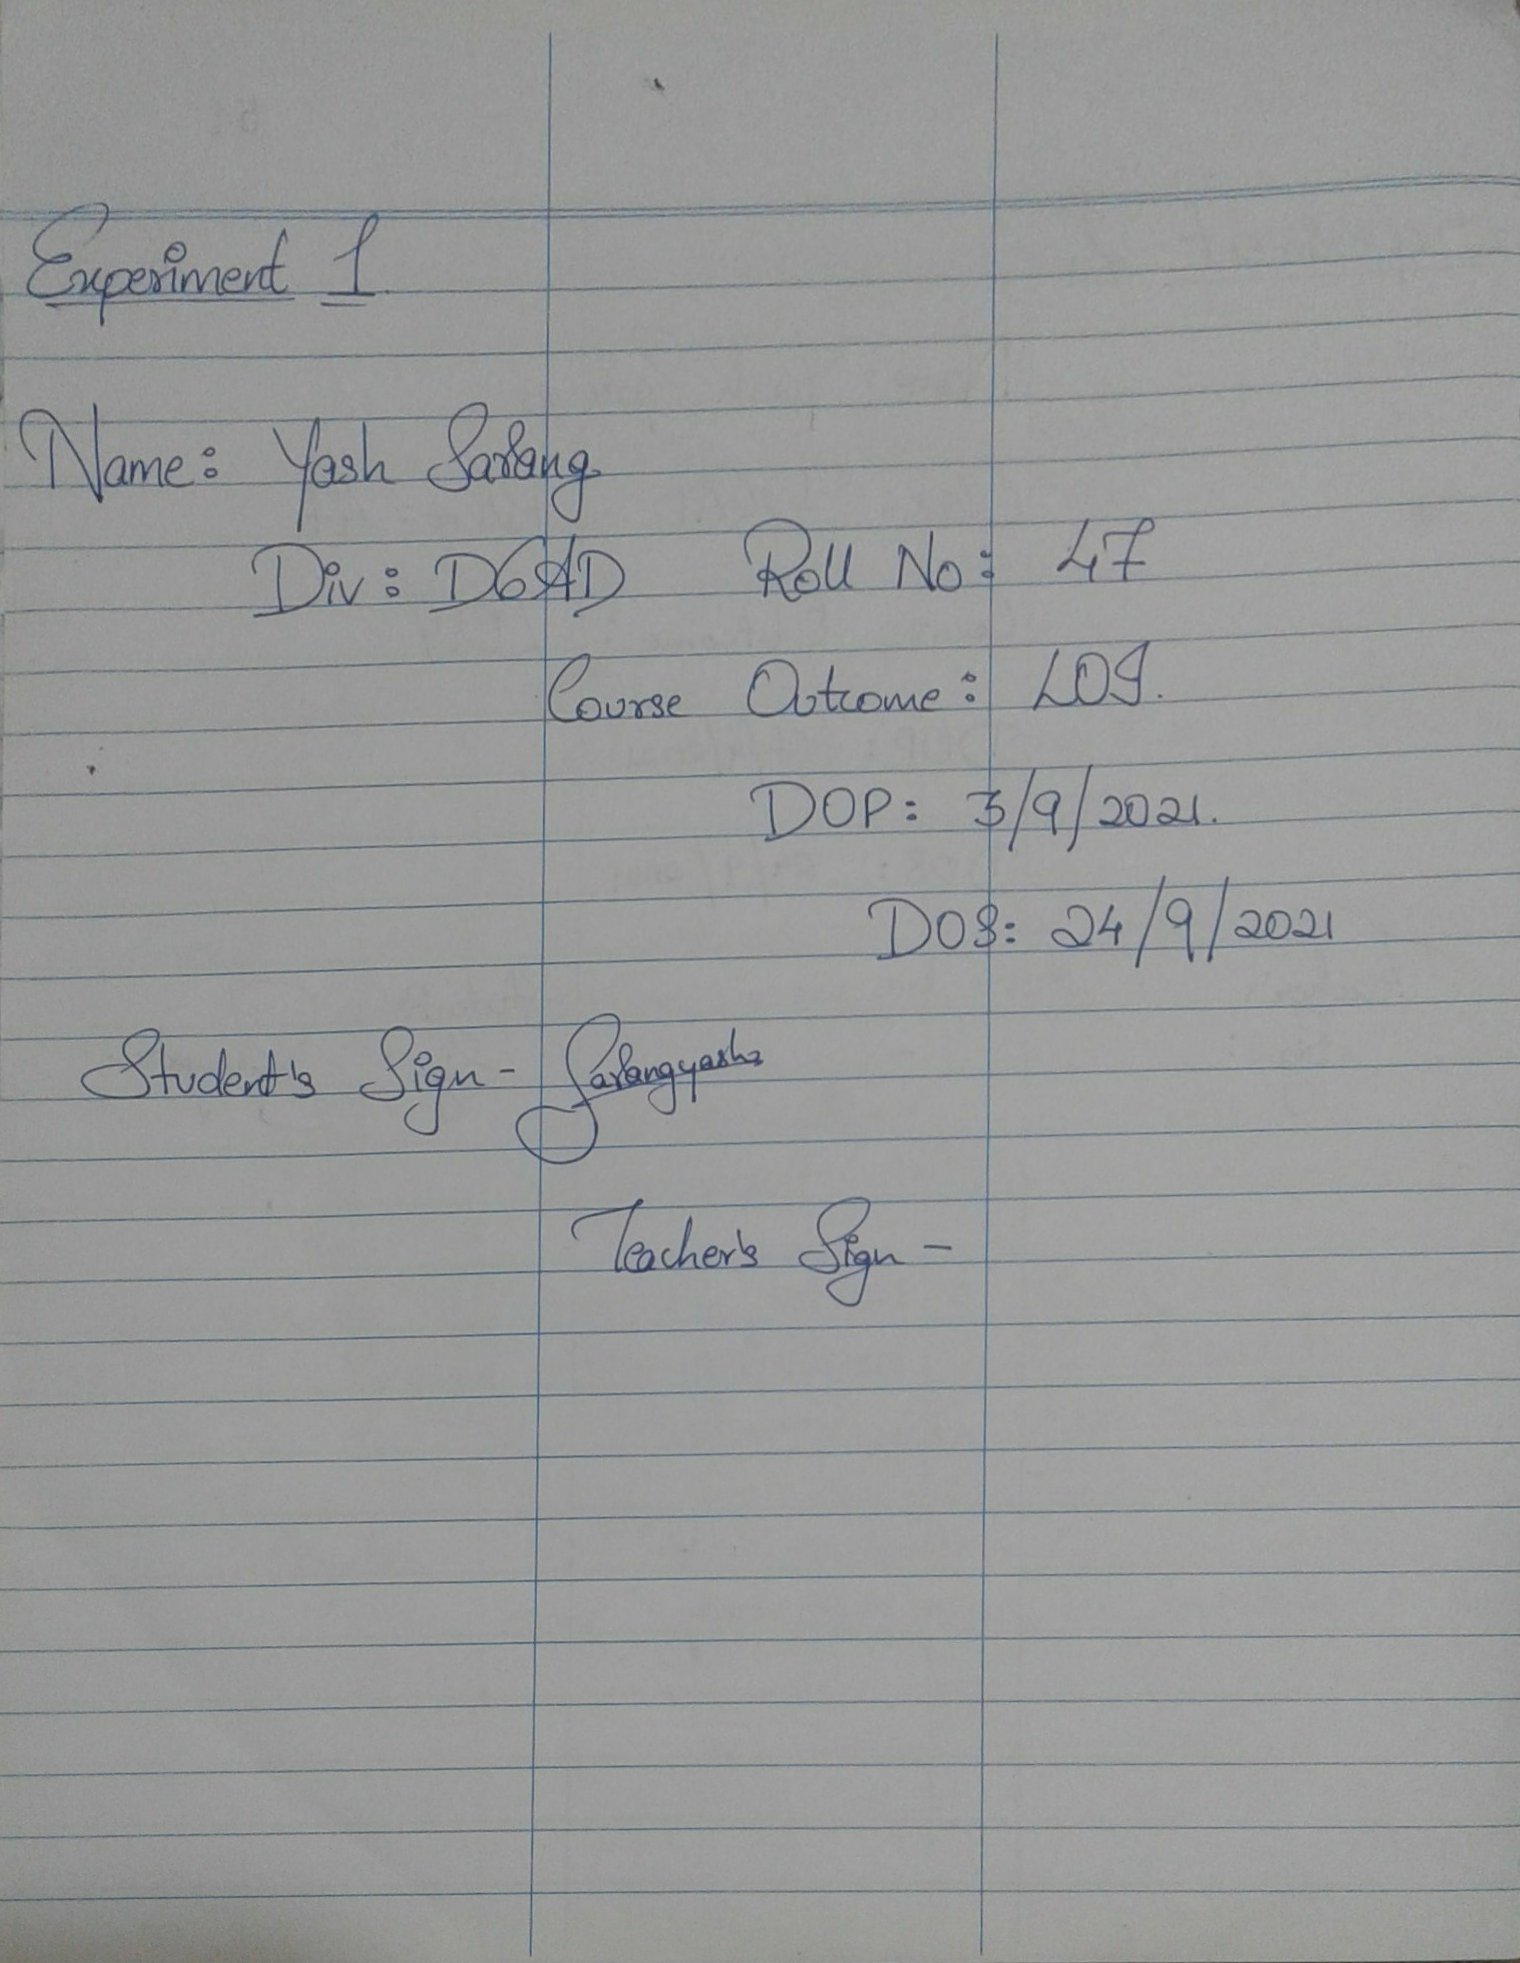 Experiment 1
Name: Yash Sarang.
Div: D6AD Roll No: 47
Course Outcome: LO1.
DOP: 3/9/2021.
DOS: 24/9/2021
Student's Sign- Sarangyash
Teacher's Sign -